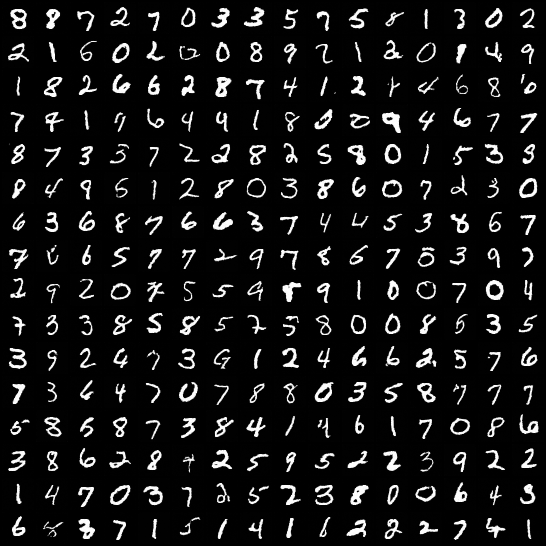 8 8 7 2 7 0 3 3 5 7 5 8 1 3 0 2
2 1 6 0 2 2 0 8 9 2 1 2 0 1 4 9
1 8 2 6 6 2 8 7 4 1 2 4 6 8 6
7 7 1 9 6 4 9 1 8 0 0 9 4 6 7 7
8 7 3 3 7 2 2 8 2 5 8 0 1 5 3 3
8 4 9 5 1 2 8 0 3 8 6 0 7 2 3 0
6 3 6 8 7 6 6 3 7 4 4 5 3 8 6 7
7 6 6 5 7 7 2 9 7 8 6 7 8 3 9 7
2 9 2 0 7 5 5 9 8 9 1 0 0 7 0 4
7 3 3 8 5 8 5 7 5 8 0 0 8 6 3 5
3 9 2 4 7 3 9 1 2 4 6 6 2 5 7 6
7 3 6 4 7 0 7 8 8 0 3 5 8 7 7 7
5 8 5 8 7 3 8 4 1 4 6 1 7 0 8 6
3 8 6 2 8 4 2 5 9 5 2 2 3 9 2 2
1 4 7 0 3 7 2 5 2 3 8 0 0 6 4 3
6 8 3 7 1 5 1 4 1 6 2 2 2 7 4 1